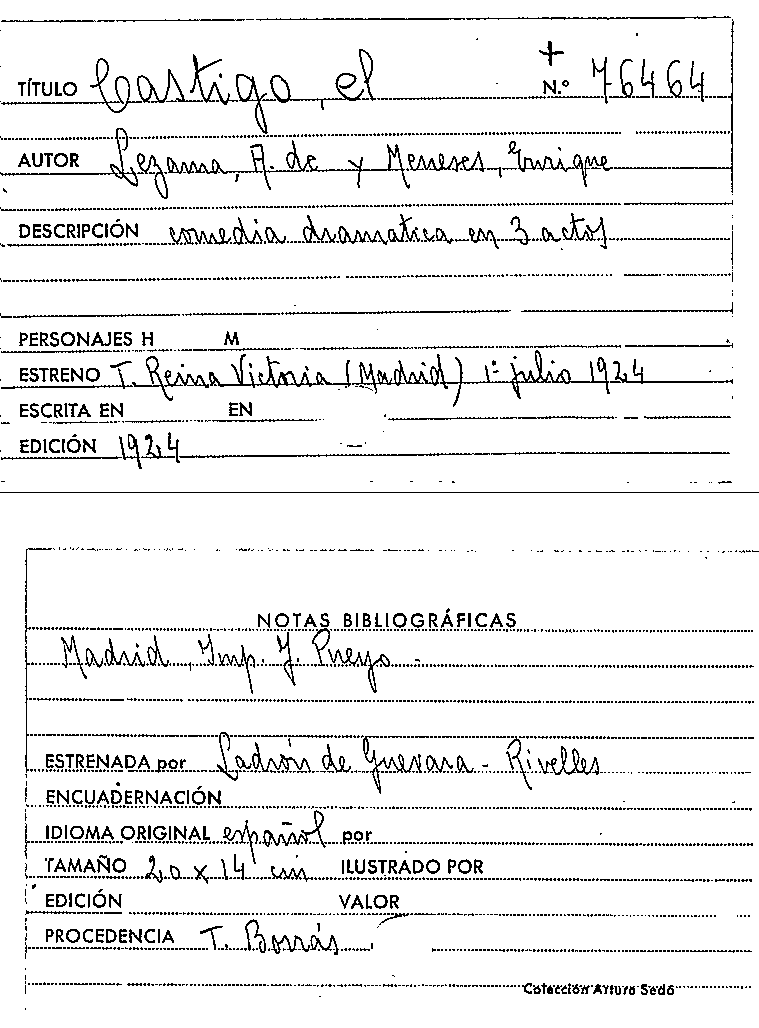 TÍTULO Castigo, el + N.º 76464
AUTOR Lezama, A. de y Meneses, Enrique
DESCRIPCIÓN comedia dramatica en 3 actos
PERSONAJES H M
ESTRENO T. Reina Victoria (Madrid) 1º julio 1924
ESCRITA EN EN
EDICIÓN 1924
NOTAS BIBLIOGRÁFICAS
Madrid, Imp. J. Pueyo -
ESTRENADA por Ladrón de Guevara - Rivelles
ENCUADERNACIÓN
IDIOMA ORIGINAL español por
TAMAÑO 20 x 14 cm ILUSTRADO POR
EDICIÓN VALOR
PROCEDENCIA T. Borrás
Colección Arturo Sedó